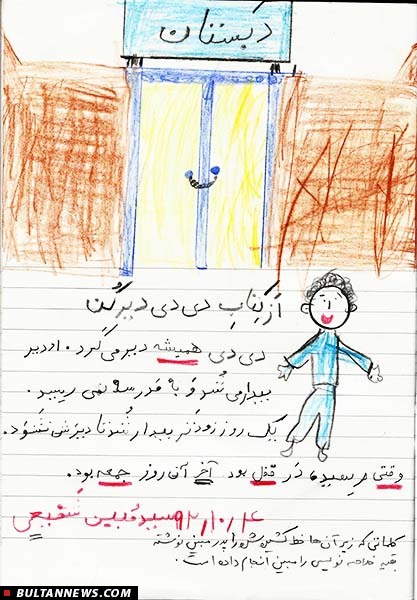 دبستان
از کتاب دی دی دیر کن
دی دی همیشه دیر می کرد. او دیر
بیدار می شد و به مدرسه نمی رسید.
یک روز زودتر بیدار شد تا دیرش نشود.
وقتی رسید، در قفل بود آخر آن روز جمعه بود.
سید مبین شفیعی ۹۲/۱۰/۴
کلماتی که زیر آن ها خط کشیدہ شدہ را پدر مبین نوشته
بقیه خلاصه نویسی را مبین انجام داده است.
BULTANNEWS.COM